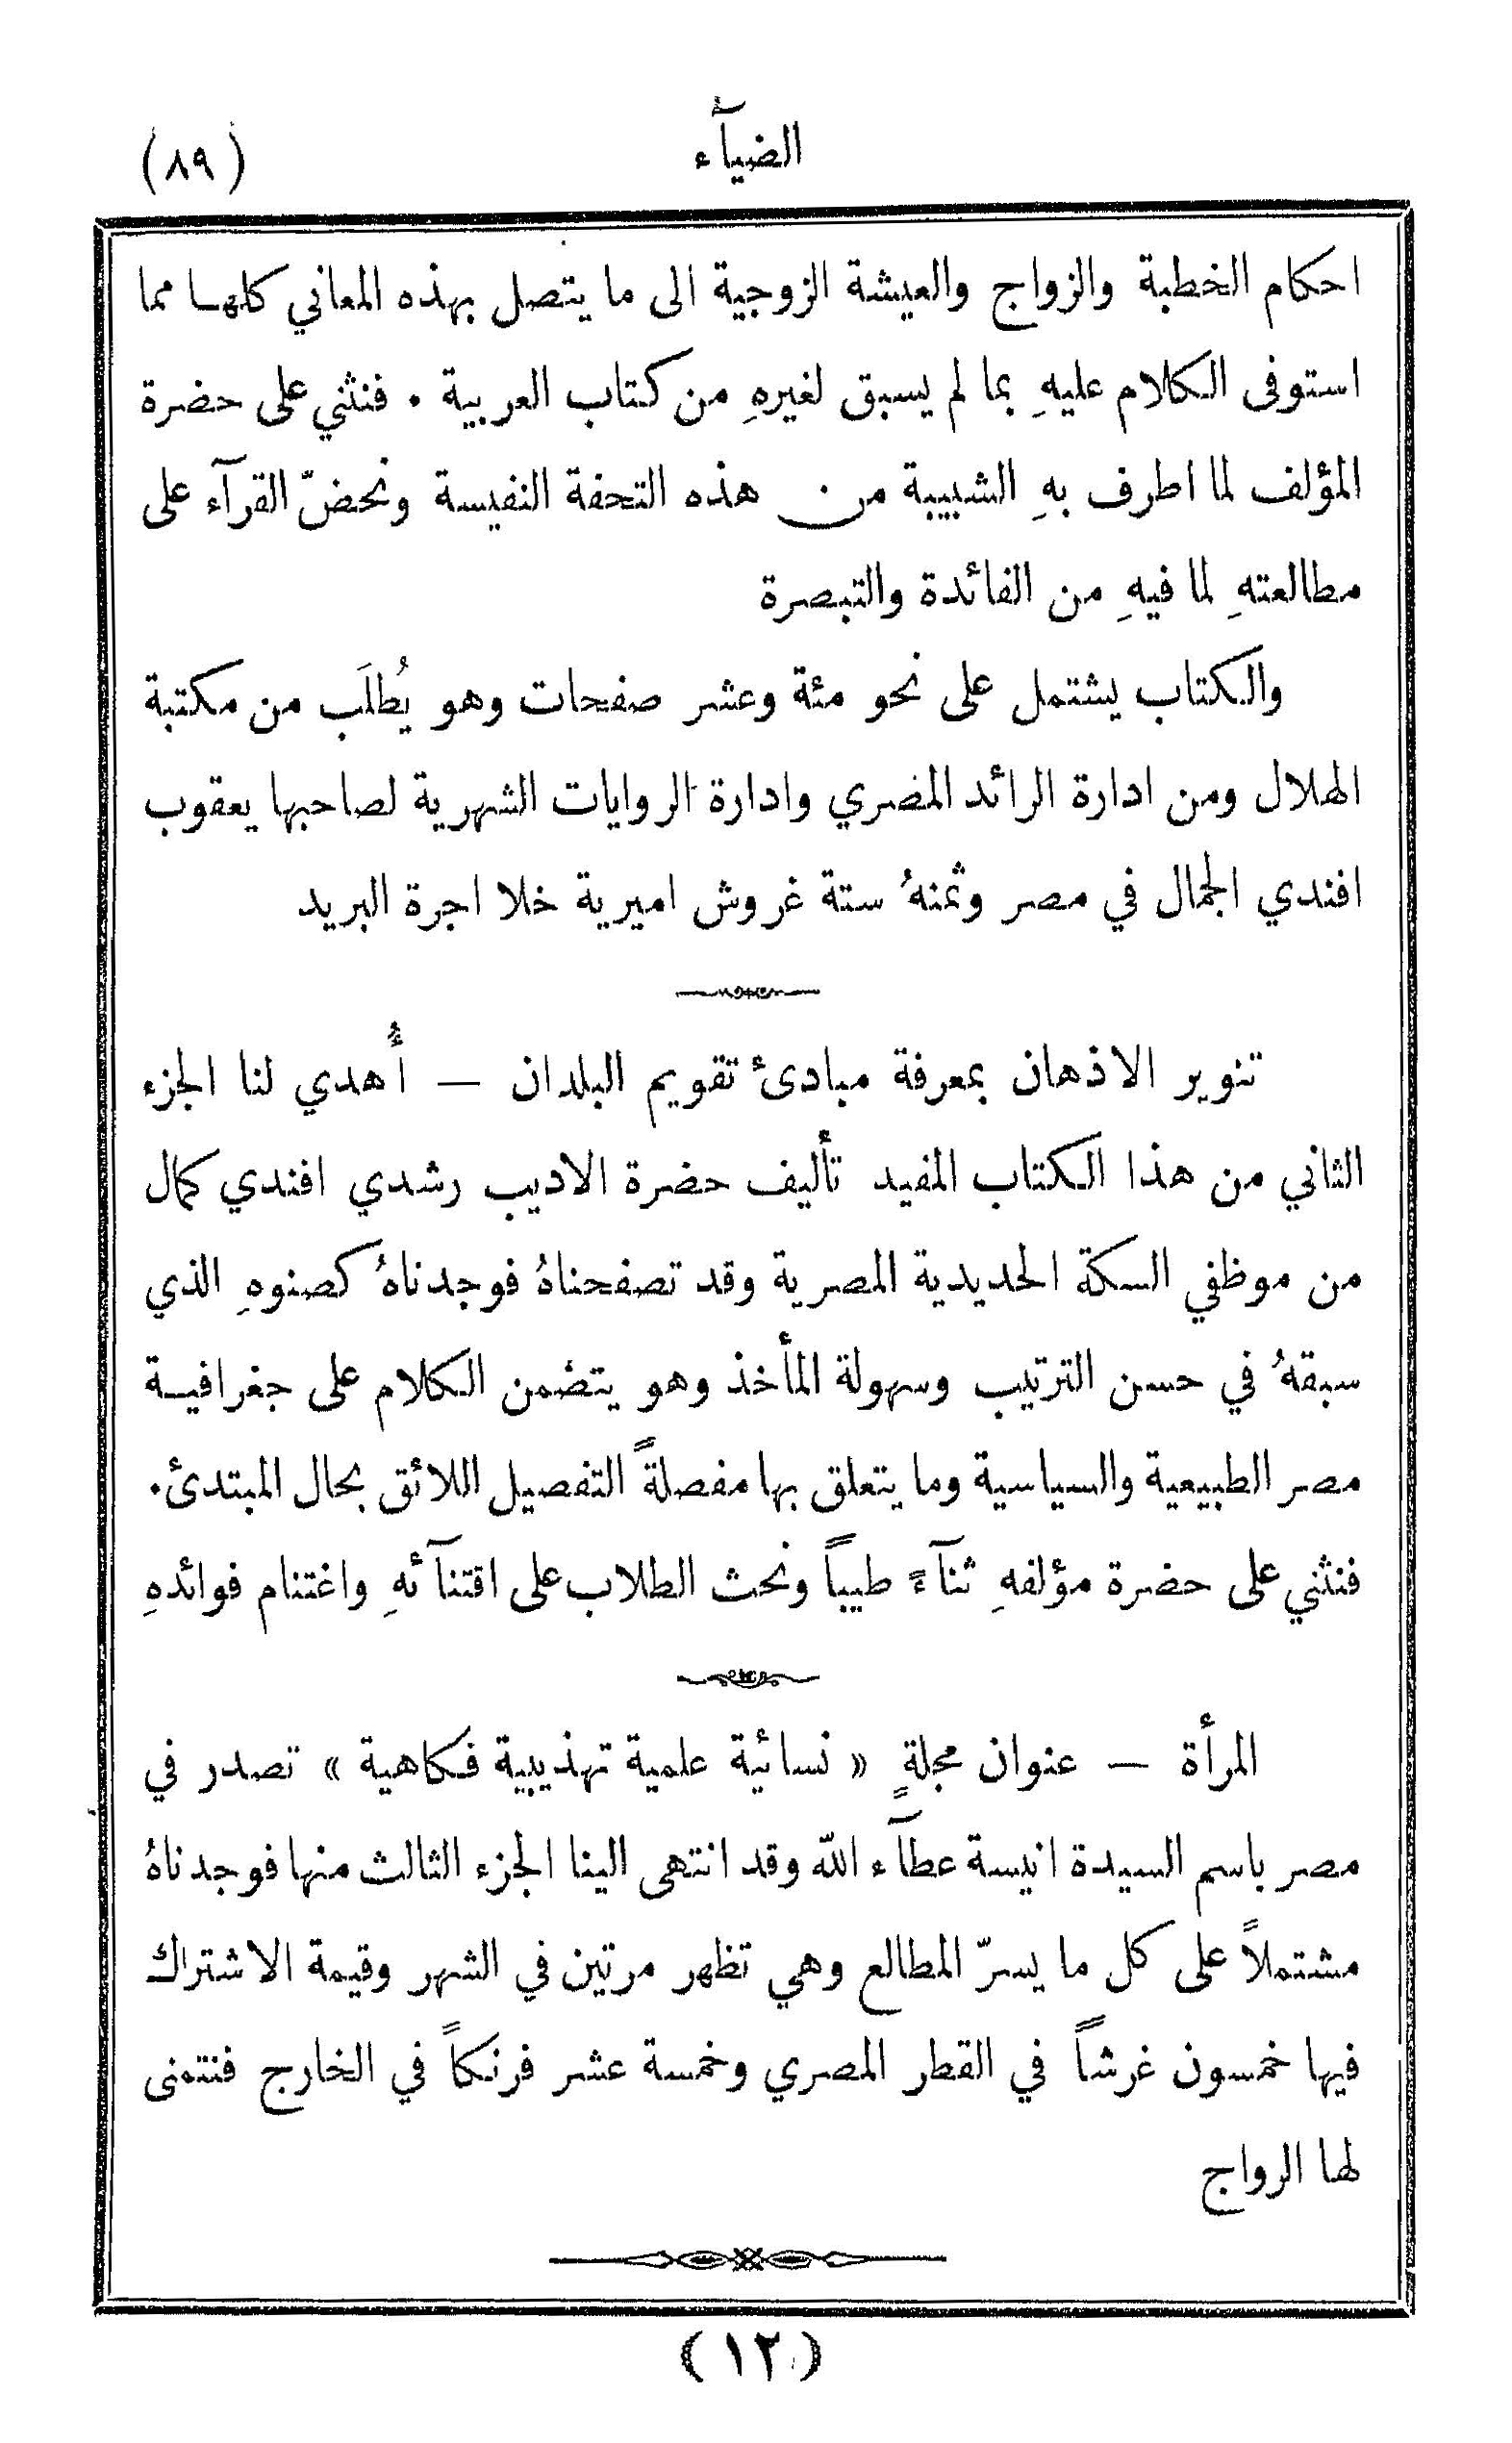 الضيآء
(٨٩)
احكام الخطبة والزواج والعيشة الزوجية الى ما يتصل بهذه المعاني كلهـا مما
استوفى الكلام عليهِ بما لم يسبق لغيرهِ من كتاب العربية . فنثني على حضرة
المؤلف لما اطرف بهِ الشبيبة من هذه التحفة النفيسة ونحضّ القرآء على
مطالعتهِ لما فيهِ من الفائدة والتبصرة
والكتاب يشتمل على نحو مئة وعشر صفحات وهو يُطلَب من مكتبة
الهلال ومن ادارة الرائد المصري وادارة الروايات الشهرية لصاحبها يعقوب
افندي الجمال في مصر وثمنهُ ستة غروش اميرية خلا اجرة البريد
تنوير الاذهان بمعرفة مبادئ تقويم البلدان — أُهدي لنا الجزء
الثاني من هذا الكتاب المفيد تأليف حضرة الاديب رشدي افندي كمال
من موظفي السكة الحديدية المصرية وقد تصفحناهُ فوجدناهُ كصنوهِ الذي
سبقهُ في حسن الترتيب وسهولة المأخذ وهو يتضمن الكلام على جغرافيـة
مصر الطبيعية والسياسية وما يتعلق بها مفصلةً التفصيل اللائق بحال المبتدئ .
فنثني على حضرة مؤلفهِ ثنآءً طيباً ونحث الطلاب على اقتنآئهِ واغتنام فوائدهِ
المرأة — عنوان مجلةٍ « نسائية علمية تهذيبية فكاهية » تصدر في
مصر باسم السيدة انيسة عطآء الله وقد انتهى الينا الجزء الثالث منها فوجدناهُ
مشتملاً على كل ما يسرّ المطالع وهي تظهر مرتين في الشهر وقيمة الاشتراك
فيها خمسون غرشاً في القطر المصري وخمسة عشر فرنكاً في الخارج فنتمنى
لها الرواج
(١٢)